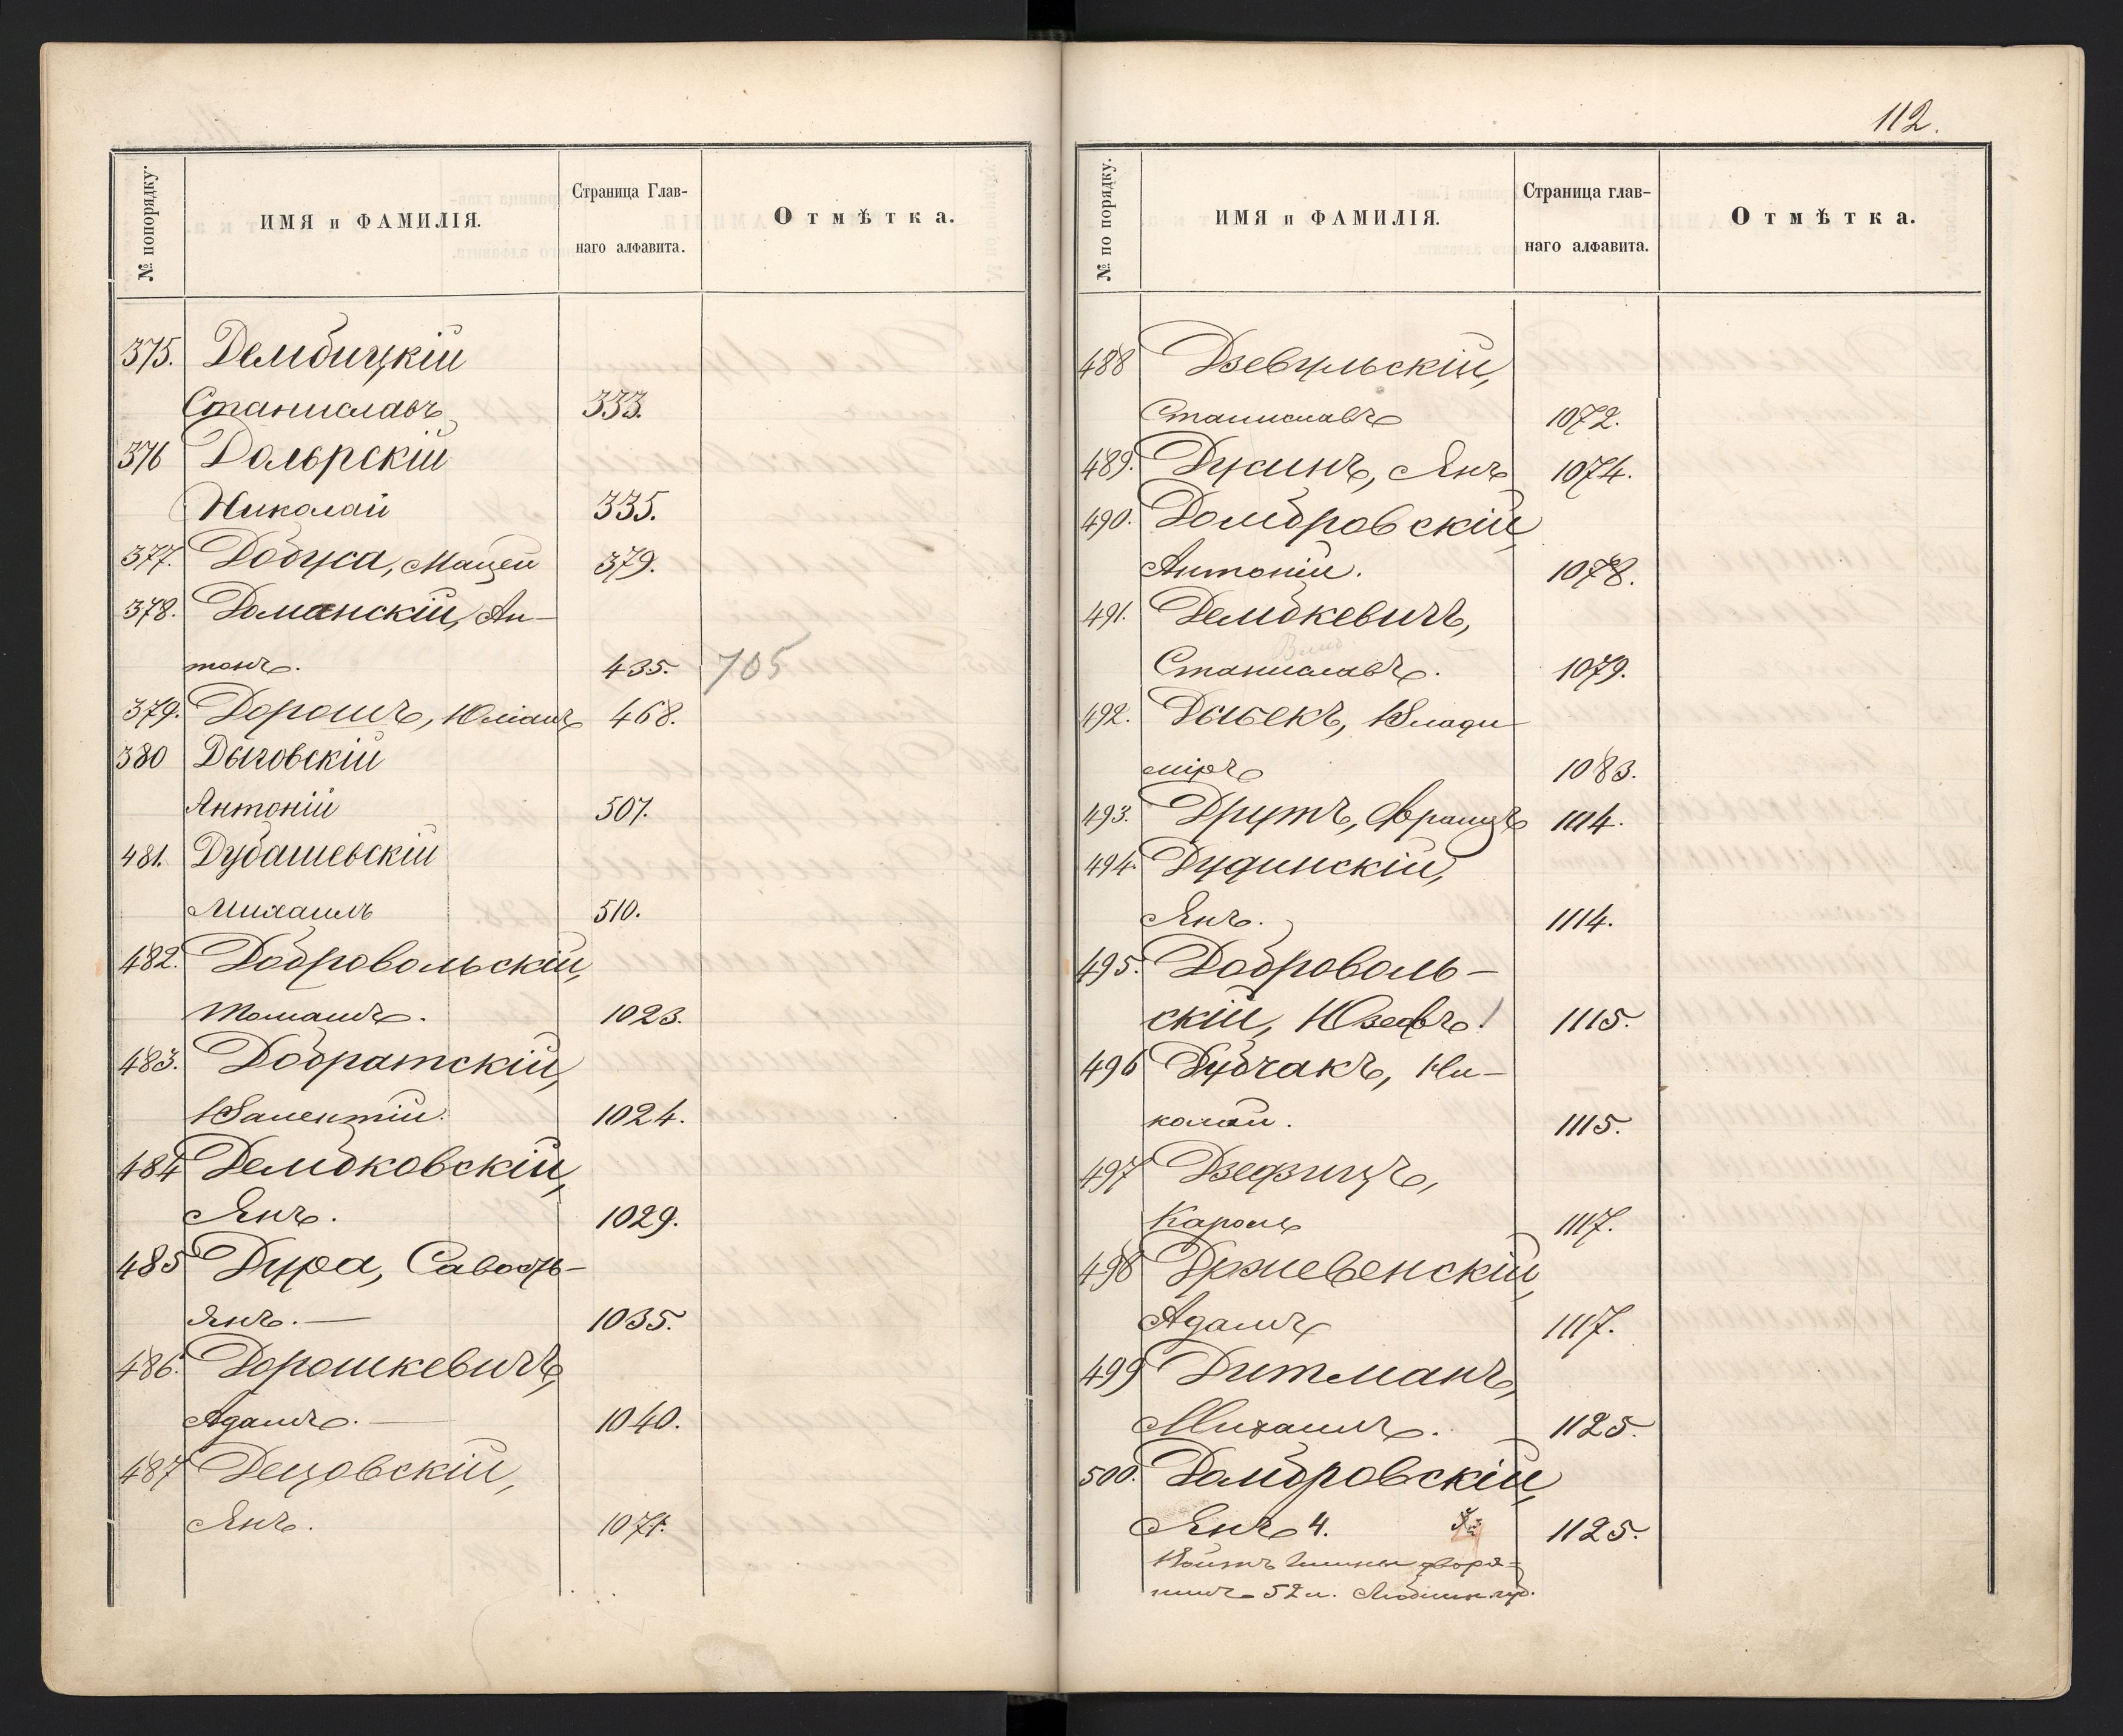 № попорядку.
ИМЯ и ФАМИЛІЯ.
Страница Глав-
наго алфавита.
Отмѣтка.
375. Дембицкій
Станиславъ 333.
376 Дольрскій
Николай 335.
377. Добуса, Мацей 379.
378. Доманскій, Ан-
тонъ. 435. 705
379. Дорошъ, Юліанъ 468.
380 Дыговскій
Антоній 507.
481. Дубашевскій
Михаилъ 510.
482. Добровольскій,
Томашъ. 1023.
483. Добратскій,
Валентій. 1024.
484 Дембковскій,
Янъ. 1029.
485 Дура, Савость-
янъ. — 1035.
486. Дорошкевичъ,
Адамъ. — 1040.
487 Децовскій,
Янъ. 1071.
112.
№ по порядку.
ИМЯ и ФАМИЛІЯ.
Страница глав-
наго алфавита.
Отмѣтка.
488 Дзевульскій,
Станиславъ 1072.
489. Дусинъ, Янъ 1074.
490. Домбровскій,
Антоній. 1078.
491. Дембкевичъ,
Станиславъ. 1079.
492. Влади-
міръ 1083.
493. Друтъ, Францъ 1114.
494. Дудинскій,
Янъ. 1114.
495. Доброволь-
скій, Юзефъ. 1115.
496 Дубчакъ, Ни-
колай. 1115.
497
Кароль 1117.
498 Држевенскій,
Адамъ 1117.
499 Дитманъ,
Михаилъ. 1125.
500. Домбровскій,
Янъ 4. 1125.
Войтъ Гмины дворя-
нинъ 52 л. Люблин. губ.